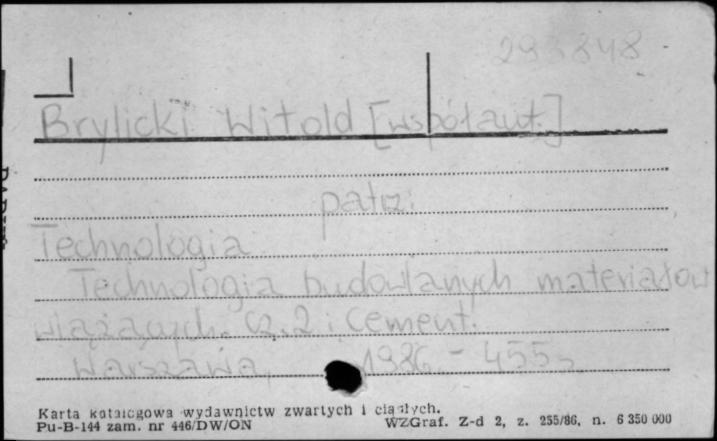 293848
Brylicki Witold [współaut.]
patrz:
Technologia
Technologia budowlanych materiałów
wiążących. Cz. 2: Cement.
Warszawa, 1986. - 455 s.
Karta katalogowa wydawnictw zwartych i ciągłych.
Pu-B-144 zam. nr 446/DW/ON WZGraf. Z-d 2, z. 255/86, n. 6 350 000